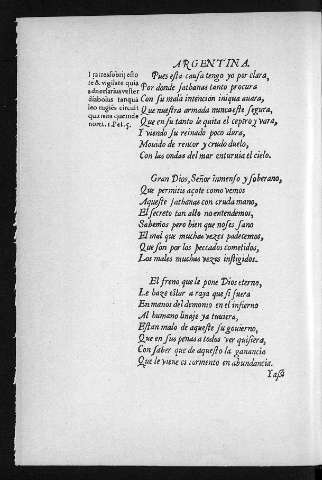 ARGENTINA.
Fratres sobrij esto
te & vigilate quia
aduersarius vester
diabolus tanquā
leo rugiēs circuit
quærens quem de
uoret. 1. Pet. 5.
Pues esta causa tengo yo por clara,
Por donde sathanas tanto procura
Con su mala intencion iniqua auara,
Que nuestra armada nunca este segura,
Que en su tanto le quita el ceptro y vara,
I viendo su reinado poco dura,
Mouado de rencor y crudo duelo,
Con las ondas del mar enturuia el cielo.
Gran Dios, Señor inmenso y soberano,
Que permitis açote como vemos
Aqueste sathanas con cruda mano,
El secreto tan alto no entendemos,
Sabemos pero bien que no es sano
El mal que muchas vezes padecemos,
Que son por los peccados cometidos,
Los males muchas vezes instigidos.
El freno que le pone Dios eterno,
Le haze estar a raya que si fuera
En manos del demonio en el infierno
Al humano linaje ya tuuiera,
Es tan malo de aqueste su gouierno,
Que en sus penas a todos ver quisiera,
Con saber que de aquesto la ganancia
Que le viene es tormento en abundancia.